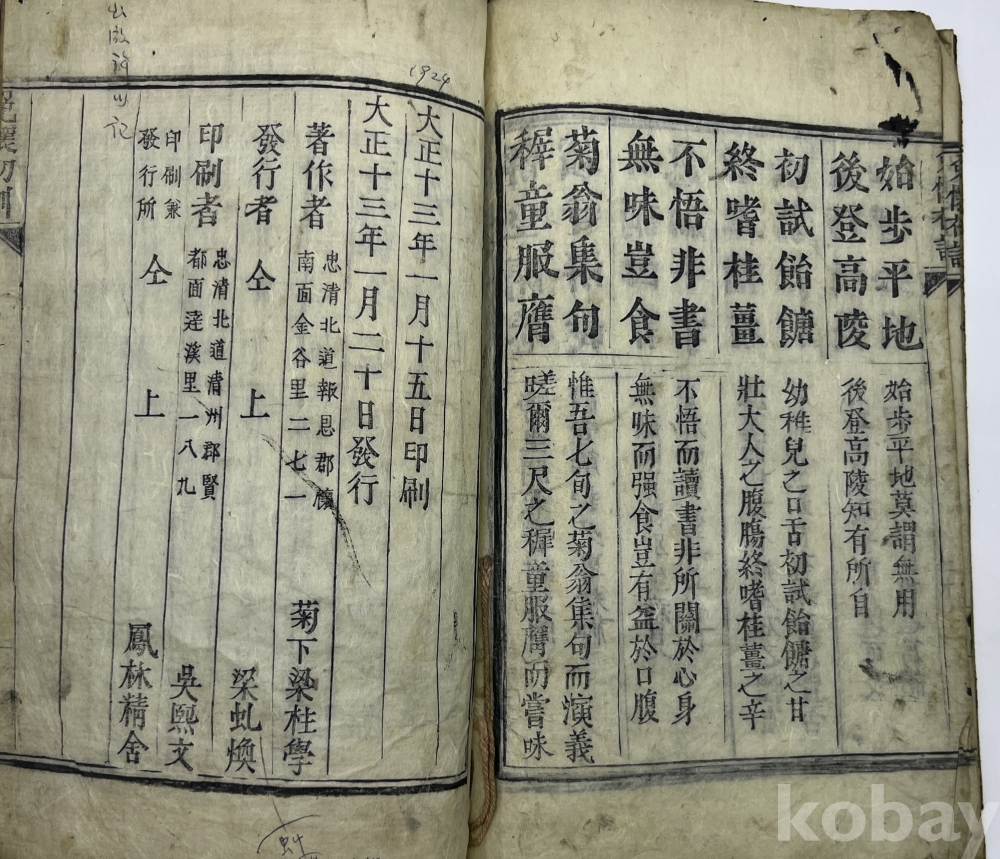 始步平地
後登高陵
初試飴餹
終嗜桂薑
不悟非書
無味豈食
菊翁集句
穉童服膺
始步平地莫謂無用
後登高陵知有所自
幼稚兒之口舌初試飴餹之甘
壯大人之腹膓終嗜桂薑之辛
不悟而讀書非所關於心身
無味而强食豈有益於口腹
惟吾七旬之菊翁集句而演義
嗟爾三尺之穉童服膺而嘗味
1924
大正十三年一月十五日印刷
大正十三年一月二十日發行
著作者 忠清北道報恩郡懷
南面金谷里二七一 菊下梁柱學
發行者 仝上 梁虬煥
印刷者 忠清北道清州郡賢
都面達溪里一八九 吳熙文
印刷兼
發行所 仝上 鳳林精舍
kobay